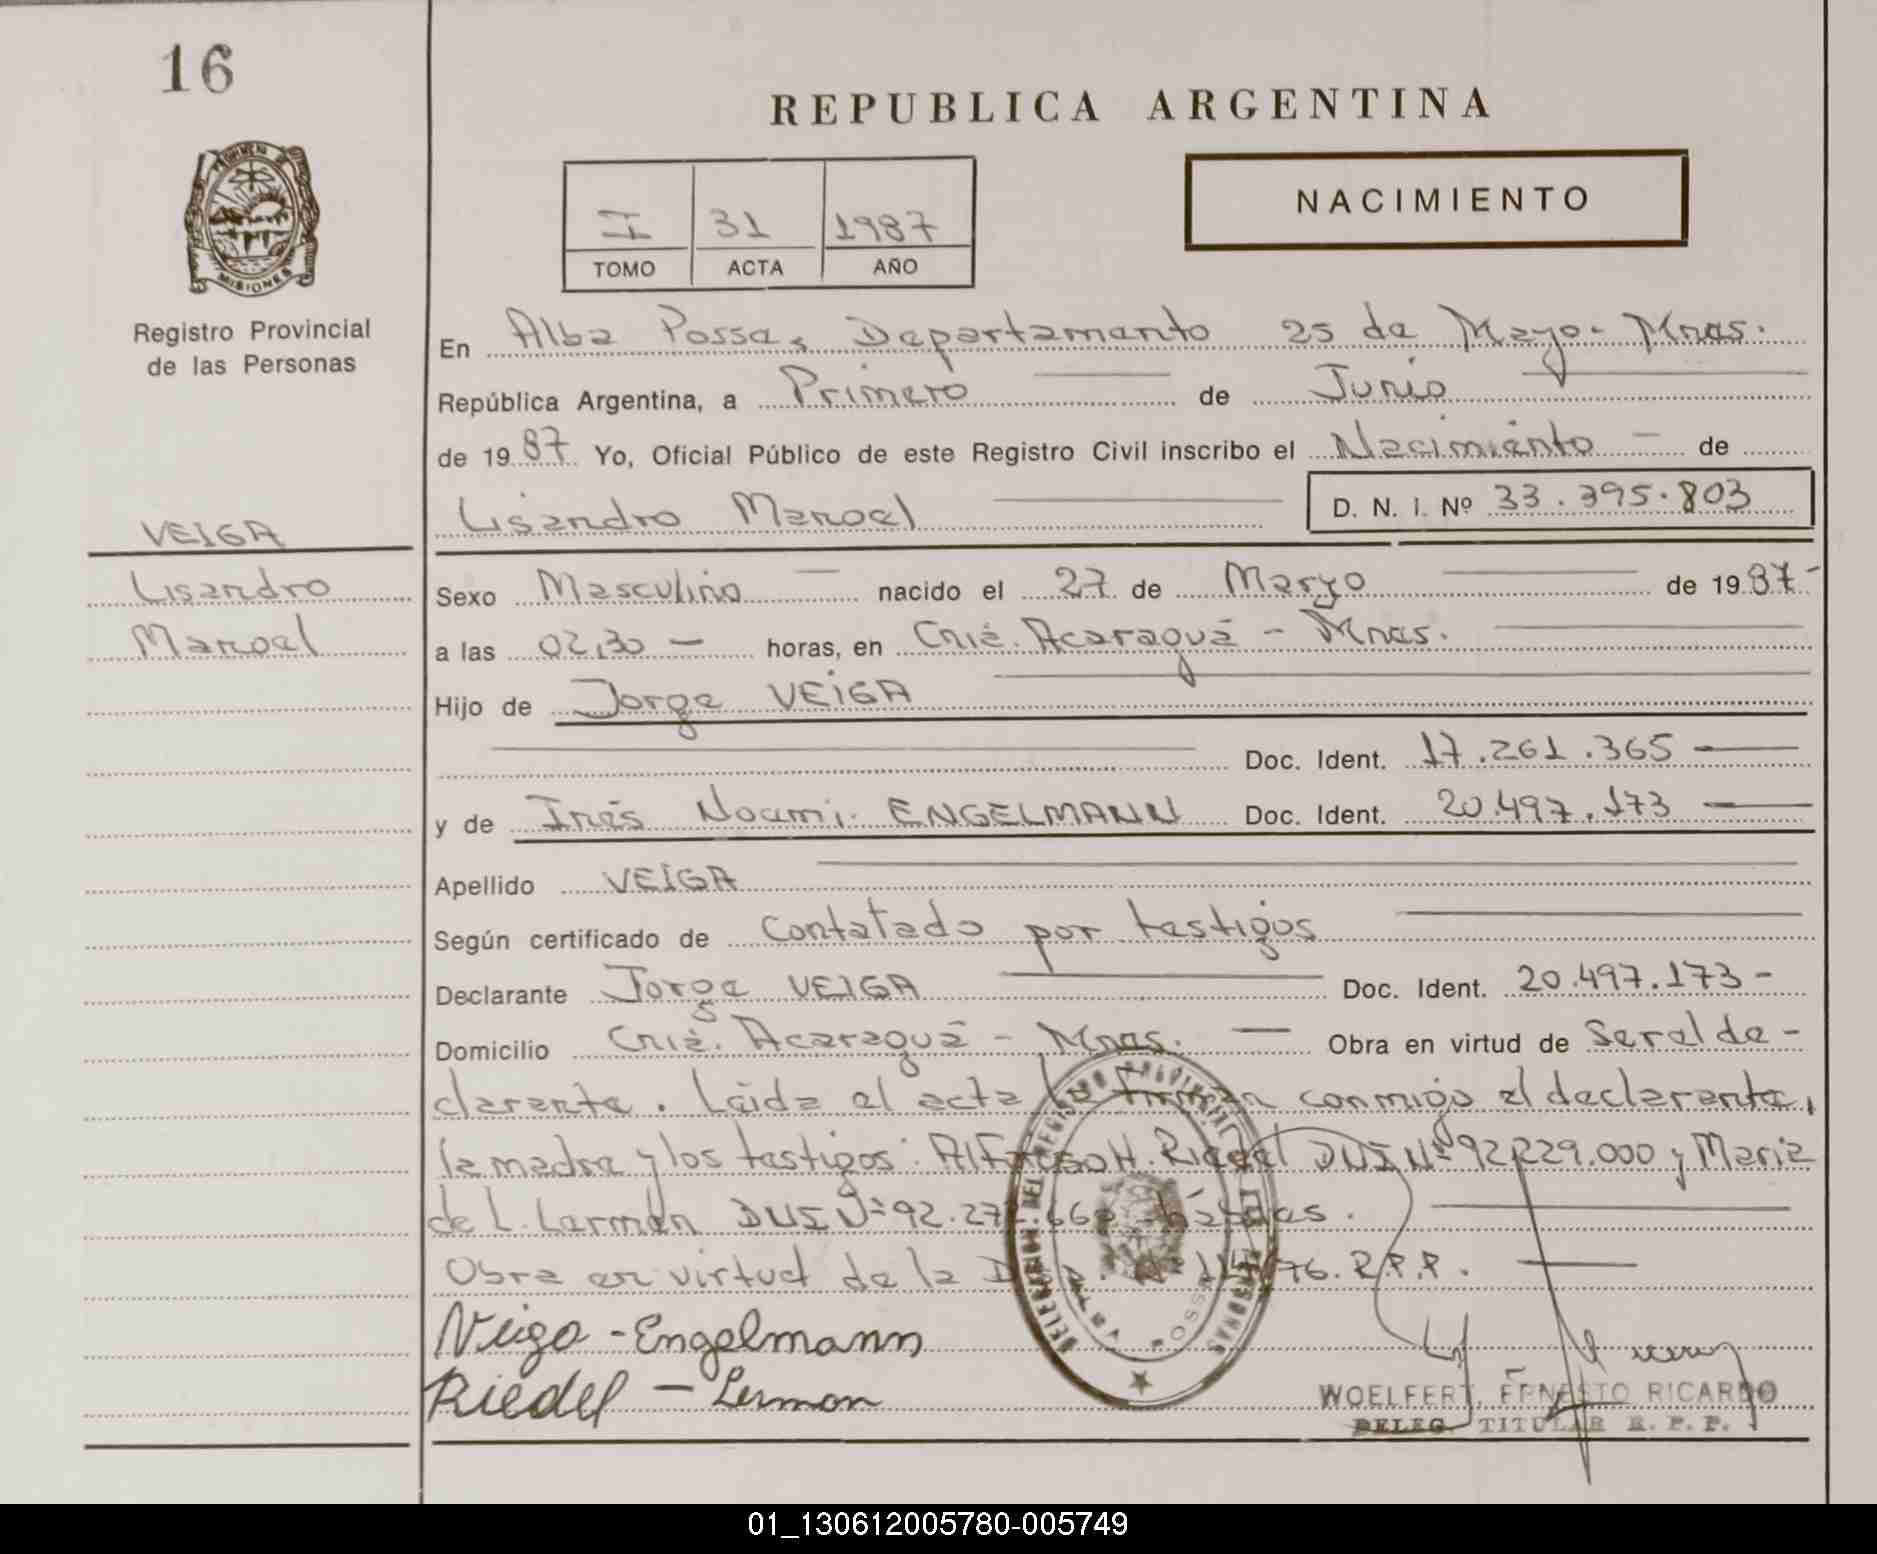 16
REPUBLICA ARGENTINA
PROVINCIA DE
MISIONES
Registro Provincial
de las Personas
I 31 1987
TOMO ACTA AÑO
NACIMIENTO
En Alba Possa, Departamento 25 de Mayo - Mnes.
República Argentina, a Primero de Junio
de 1987 Yo, Oficial Público de este Registro Civil inscribo el Nacimiento - de
Lisandro Manoel D. N. I. Nº 33.395.803
VEIGA
Lisandro
Manoel
Sexo Masculino nacido el 27 de Marzo de 1987-
a las 02,30 - horas, en Cnia. Acaraguá - Mnes.
Hijo de Jorge VEIGA
Doc. Ident. 17.261.365
y de Inés Noemi ENGELMANN Doc. Ident. 20.497.173
Apellido VEIGA
Según certificado de Contatado por testigos
Declarante Jorge VEIGA Doc. Ident. 20.497.173-
Domicilio Cnia. Acaraguá - Mnes. - Obra en virtud de Ser el de-
clarante. Leida el acta la firman conmigo el declarante,
la madre y los testigos: H. Riedel DNI Nº 92.229.000 y Maria
de L. Lerman DNI Nº 92.
Obra en virtud de la 76. R.P.P.
Veiga - Engelmann
Riedel - Lerman
DELEGACION DEL REGISTRO PROVINCIAL DE LAS PERSONAS
ALBA POSSE
WOELFERT, ERNESTO RICARDO
DELEG. TITULAR R. P. P.
01_130612005780-005749